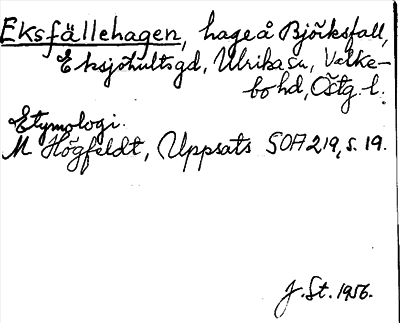 Eksfällehagen, hage å Björksfall,
Eksjöhultsgd, Ulrika sn, Valke-
bo hd, Östg. l.
Etymologi.
M Högfeldt, Uppsats SOA 219, s. 19.
J. St. 1956.